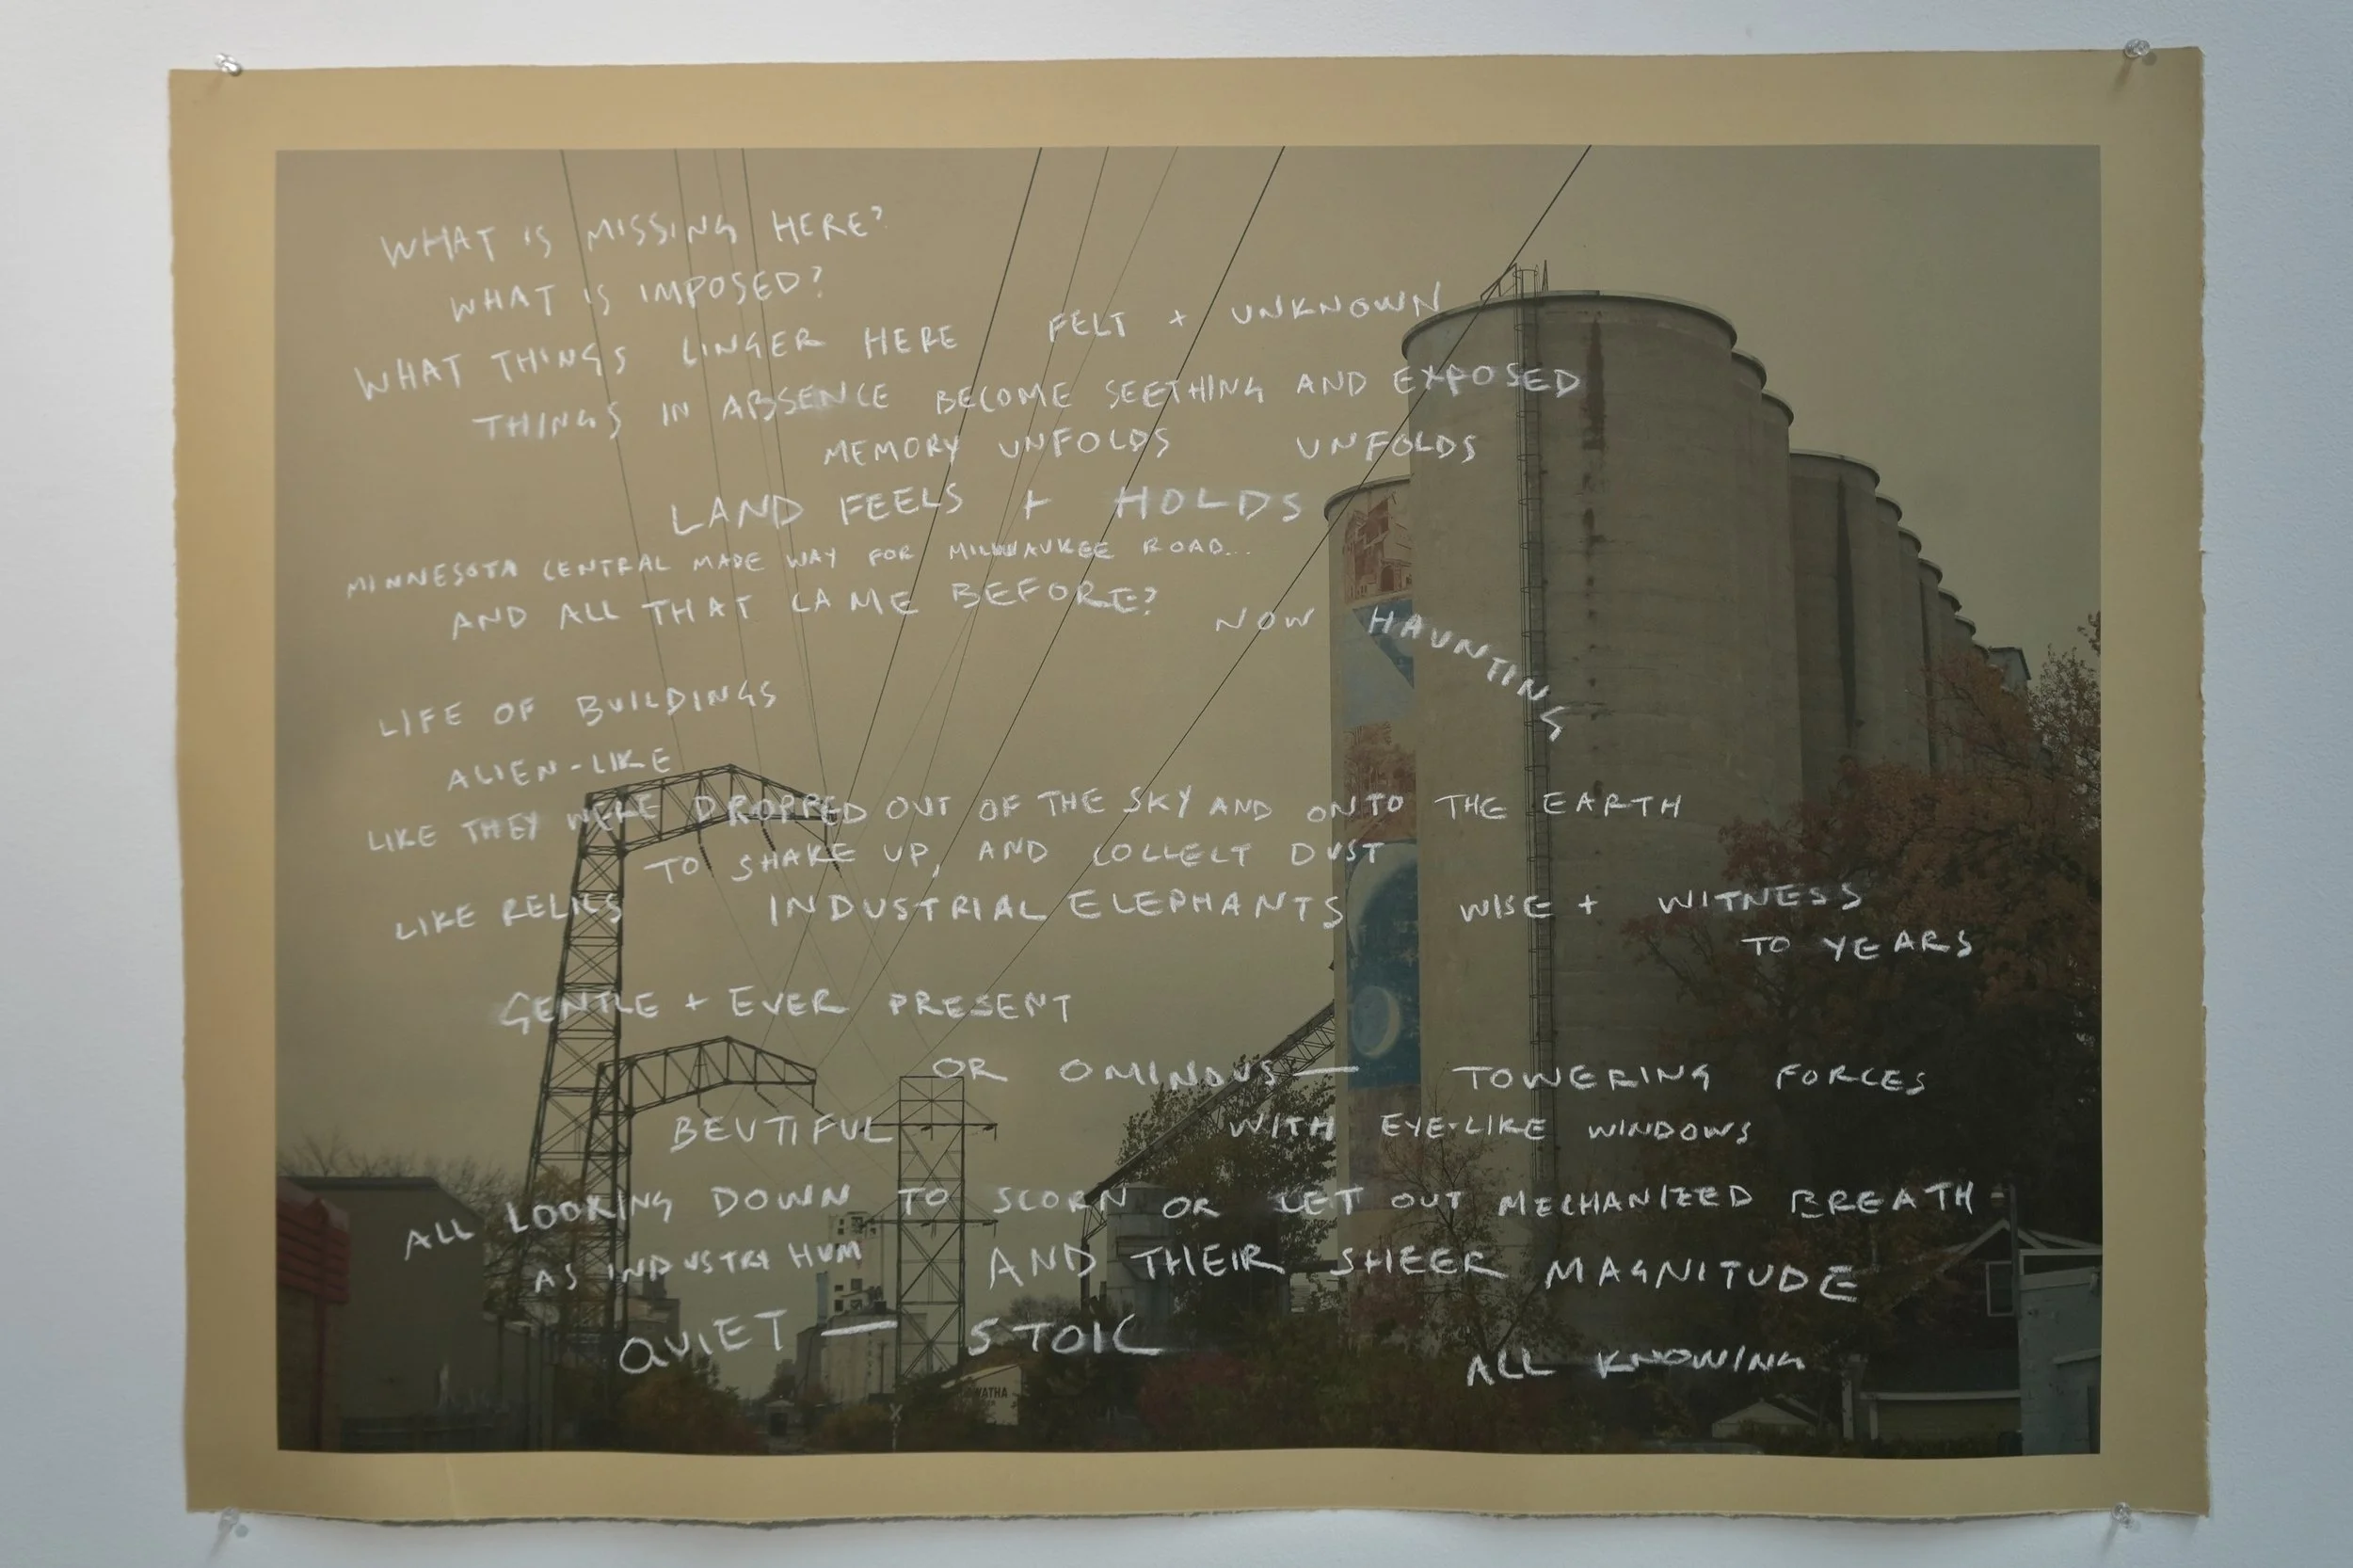 WHAT IS MISSING HERE?
WHAT IS IMPOSED?
WHAT THINGS LINGER HERE FELT + UNKNOWN
THINGS IN ABSENCE BECOME SEETHING AND EXPOSED
MEMORY UNFOLDS UNFOLDS
LAND FEELS + HOLDS
MINNESOTA CENTRAL MADE WAY FOR MILWAUKEE ROAD...
AND ALL THAT CAME BEFORE? NOW HAUNTING
LIFE OF BUILDINGS
ALIEN-LIKE
LIKE THEY WERE DROPPED OUT OF THE SKY AND ONTO THE EARTH
TO SHAKE UP, AND COLLECT DUST
LIKE RELICS INDUSTRIAL ELEPHANTS WISE + WITNESS
TO YEARS
GENTLE + EVER PRESENT
OR OMINOUS — TOWERING FORCES
BEUTIFUL WITH EYE-LIKE WINDOWS
ALL LOOKING DOWN TO SCORN OR LET OUT MECHANIZED BREATH
AS INDUSTRY HUM AND THEIR SHEER MAGNITUDE
QUIET — STOIC ALL KNOWING
WATHA